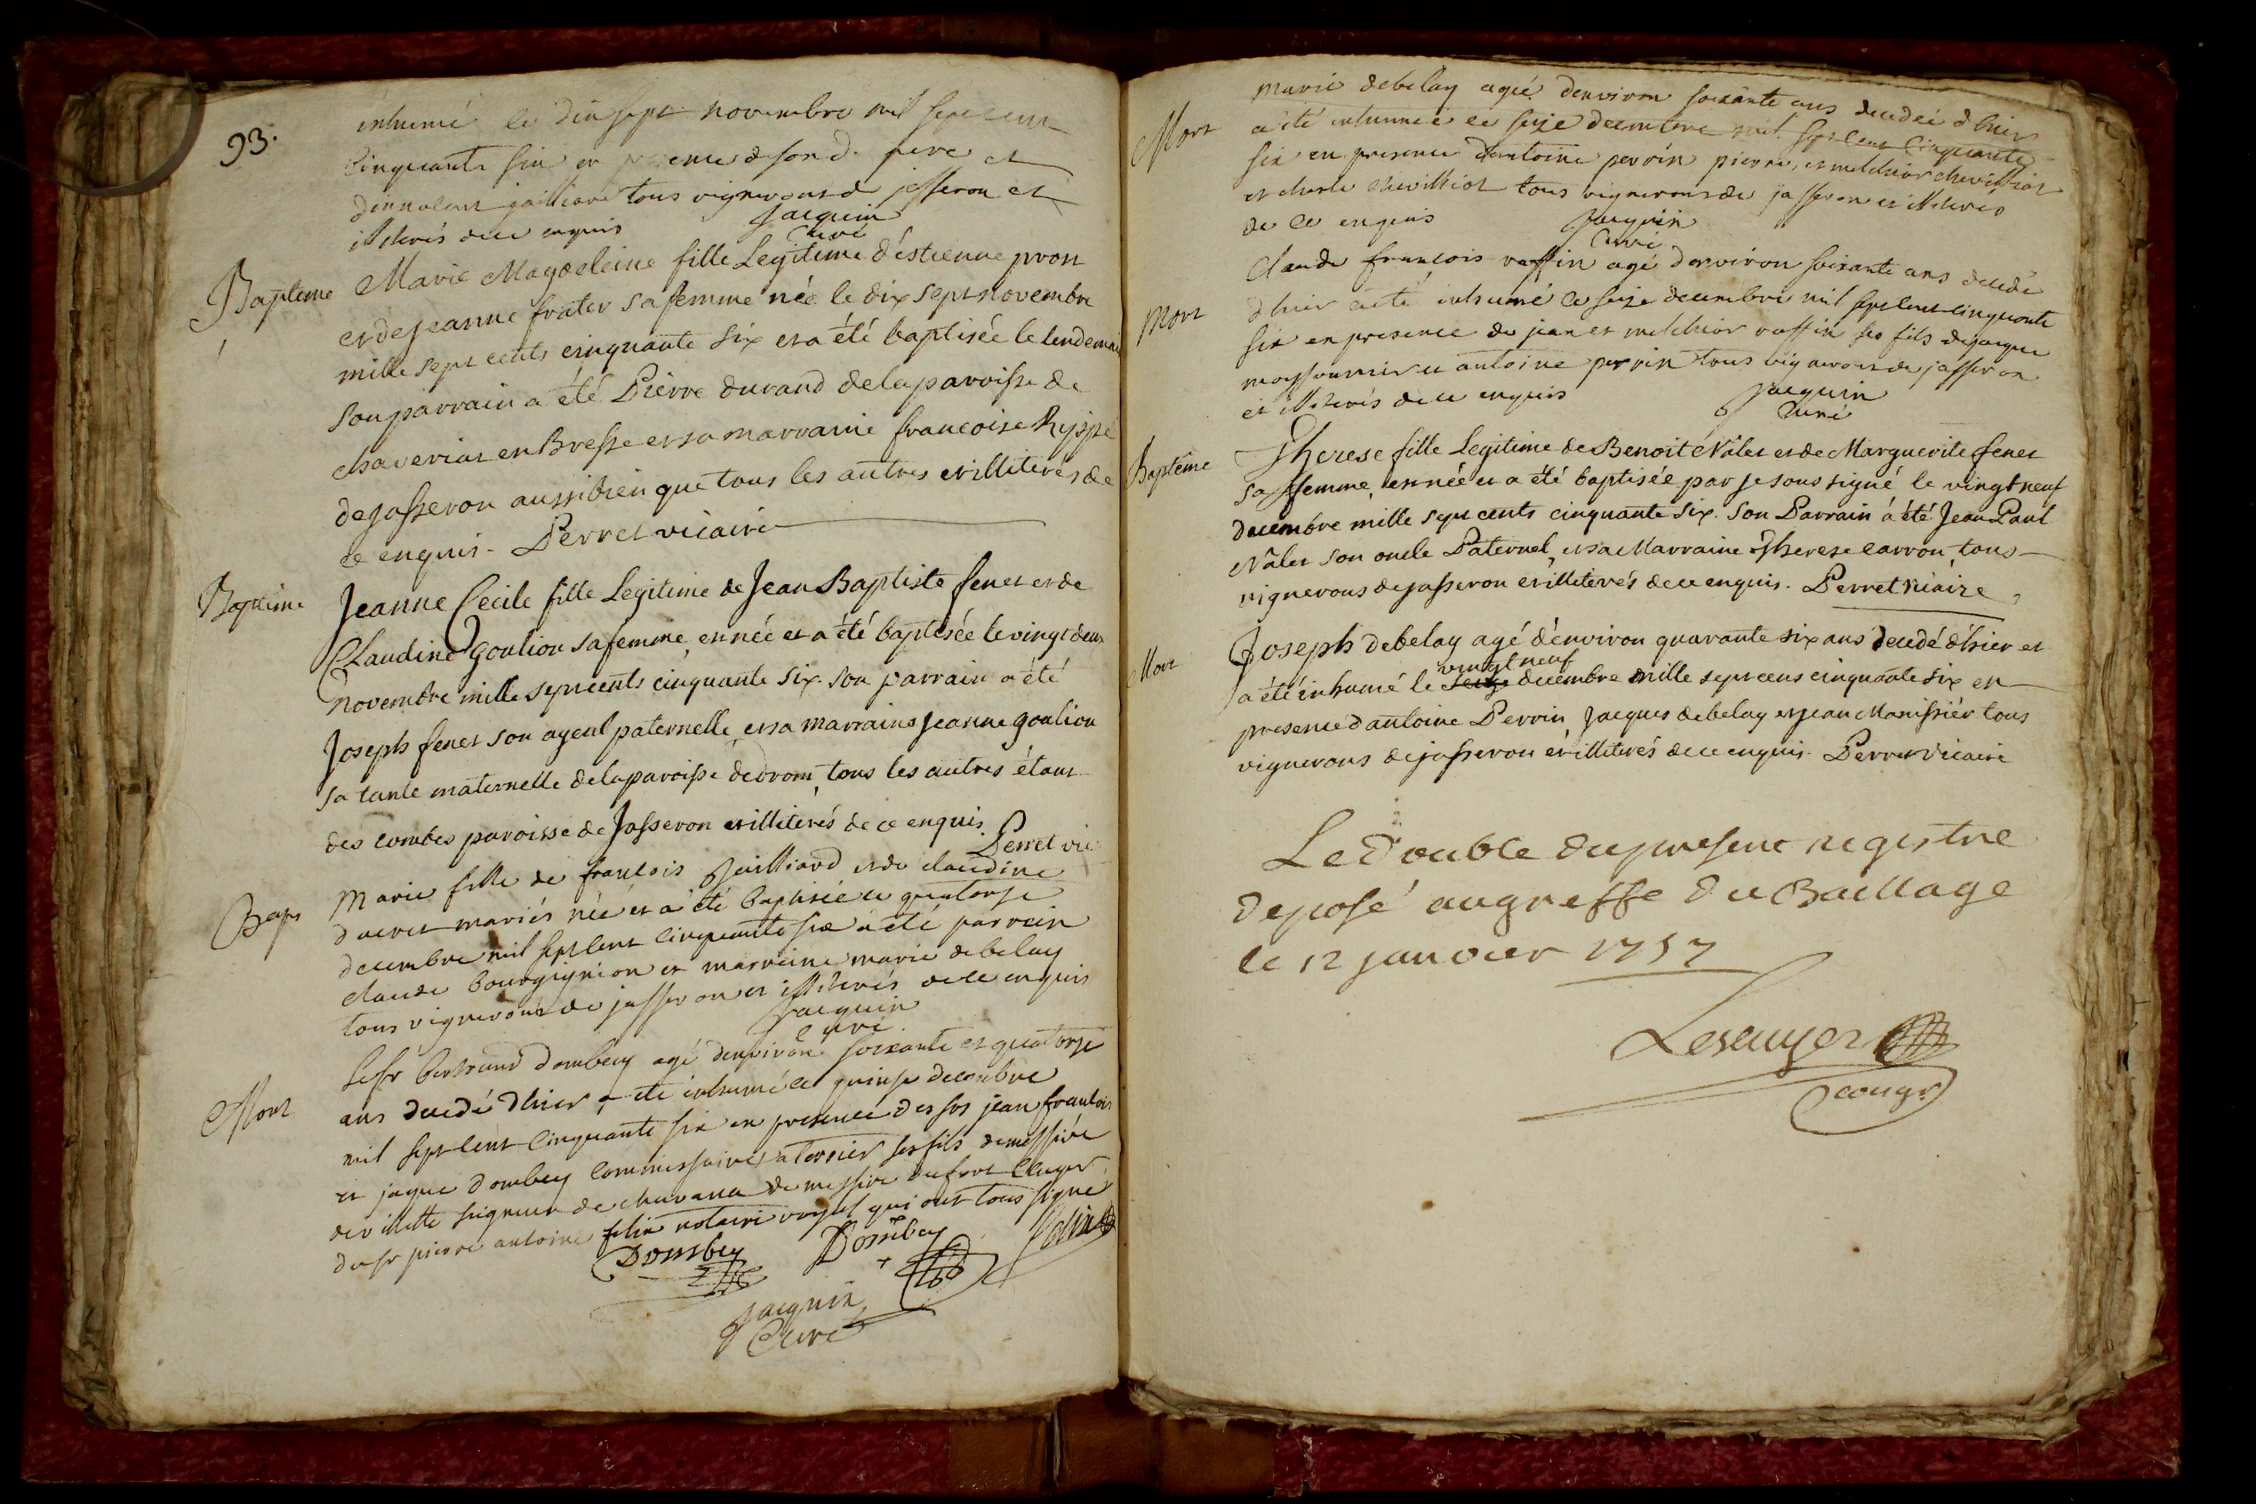 93.
inhumé le dix sept novembre mil sept cent
cinquante six en presence de son d. pere et
tous vignerons de jasseron et
illiterés de ce enquis Jacquin
curé
Bapteme Marie Magdeleine fille Legitime d'éstienne pron
et de jeanne frater sa femme née le dix sept novembre
mille sept cents cinquante six et a été baptisée le lendemain
son parrain a été Pierre durand de la paroisse de
chaveriat en Bresse et sa marraine francoise
de jasseron aussi bien que tous les autres et illiterés de
ce enquis - Perret vicaire
Bapteme Jeanne Cecile fille Legitime de Jean Baptiste fenet et de
Claudine goulion sa femme, est née et a été baptisée le vingt deux
novembre mille sept cents cinquante six. son parrain a été
Joseph fenet son ayeul paternelle et sa marraine Jeanne goulion
sa tante maternelle de la paroisse de drom, tous les autres étant
des combes paroisse de Jasseron et illiterés de ce enquis
Perret vic
Bap Marie fille de francois Jailliard et de claudine
ducret mariés née et a été baptisée le quatorze
decembre mil sept cent cinquante six a été parrain
claude bourgignion et marraine marie debelay
tous vignerons de jasseron et illiterés de ce enquis
Jacquin
curé
Mort Le sr bertrand dombey agé denviron soixante et quatorze
ans decedé dhier a été inhumé le quinze decembre
mil sept cent cinquante six en presence des srs jean francois
et jaque dombey commissaires a terrier ses fils de messire
de villette seigneur de chavana de messire
du sr pierre antoine felix notaire royal qui ont tous signé
Dombey Dombey felix
Jacquin
Curé
Mort marie debelay agée denviron soixante ans decedée dhier
a été inhumée le seize decembre mil sept cent cinquante
six en presence dantoine perrin pierre, et melchior chevilliot
et charle chevilliot tous vignerons de jasseron et illiterés
de ce enquis Jacquin
Curé
Mort Claude francois raffin agé denviron soixante ans decedé
dhier a été inhumé le seize decembre mil sept cent cinquante
six en presence de jean et melchior raffin ses fils de jaque
moyssonnier et antoine perrin tous vignerons de jasseron
et illiterés de ce enquis Jacquin
Curé
Baptême Therese fille Legitime de Benoit Nâlet et de Marguerite fenet
sa femme, est née et a été baptisée par je sous signé le vingt neuf
decembre mille sept cents cinquante six. son Parrain a été Jean Paul
Nâlet son oncle Paternel, et sa Marraine Therese carron, tous
vignerons de jasseron et illiterés de ce enquis. Perret vicaire
Mort Joseph debelay agé d'environ quarante six ans decedé d'hier et
vingt neuf
a été inhumé le seize decembre mille sept cens cinquante six en
presence d'antoine Perrin Jacques debelay et jean Monissier tous
vignerons de jasseron et illiterés de ce enquis. Perret vicaire
Le double du present registre
deposé au greffe du Baillage
le 12 janvier 1757
Lesauyer